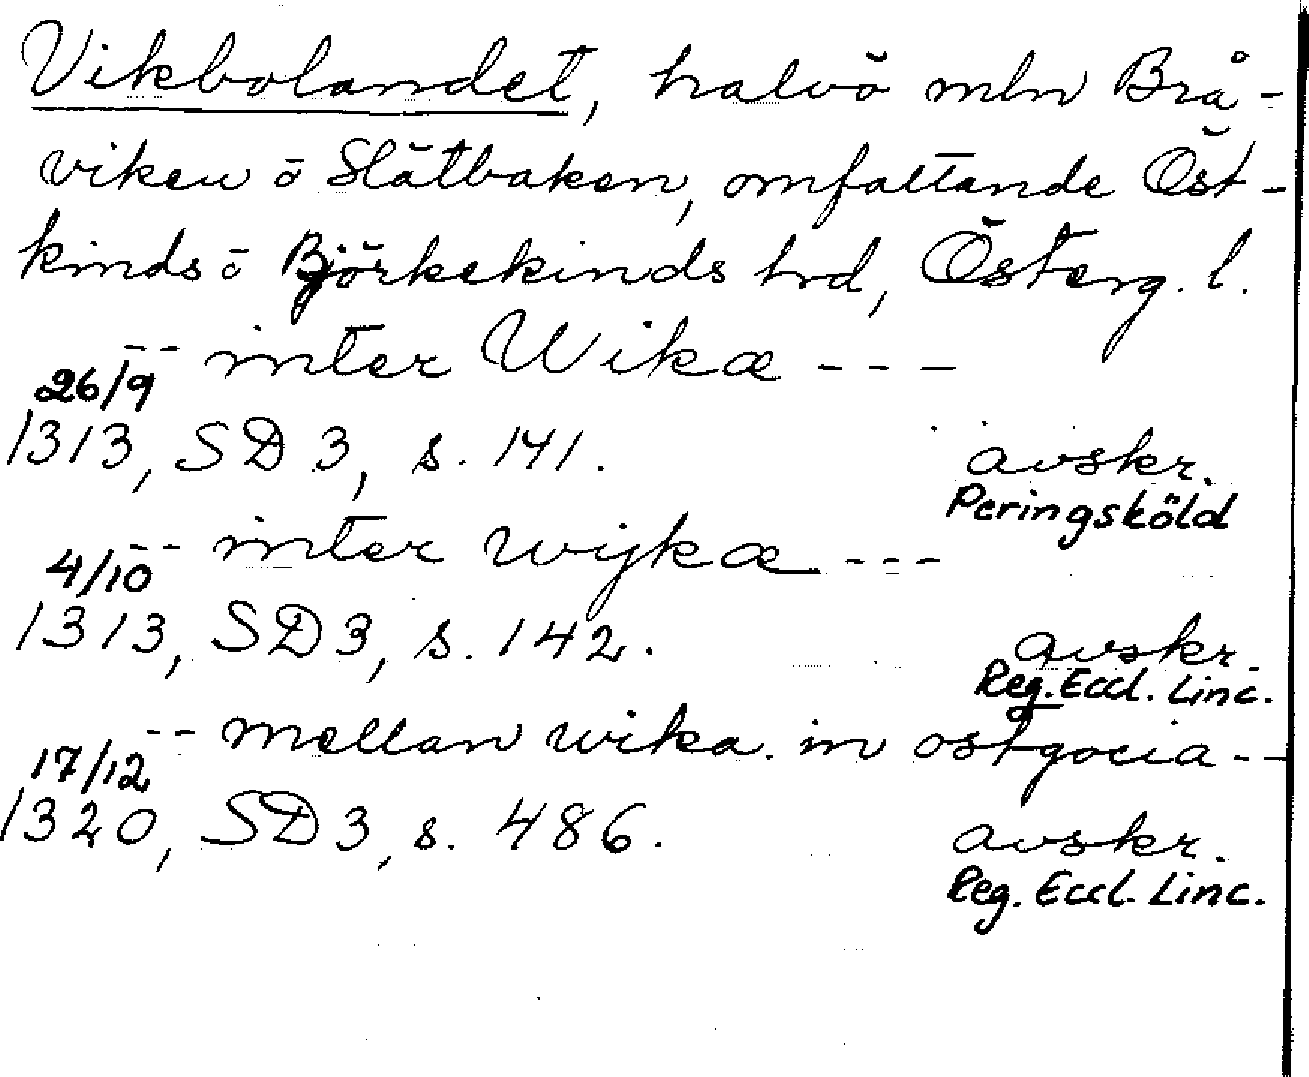 Vikbolandet, halvö mln Brå-
viken ō Slätbaken, omfattande Öst-
kinds ō Björkekinds hrd, Österg. l.
-- inter Wikæ ---
26/9
1313, SD 3, s. 141. avskr.
Peringsköld
-- inter wijkæ ---
4/10
1313, SD 3, s. 142. avskr.
Reg. Eccl. Linc.
-- mellan wika in ostgocia --
17/12
1320, SD 3, s. 486. avskr.
Reg. Eccl. Linc.